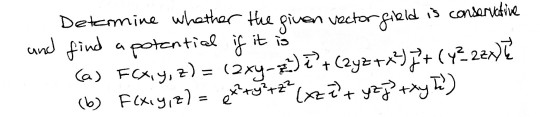 Determine whether the given vector field is conservative
and find a potential if it is
(a) F(x,y,z) = (2xy-z²)i⃗ + (2yz+x²)j⃗ + (y²-2zx)k⃗
(b) F(x,y,z) = e^(x²+y²+z²) (xz i⃗ + yz j⃗ + xy k⃗)